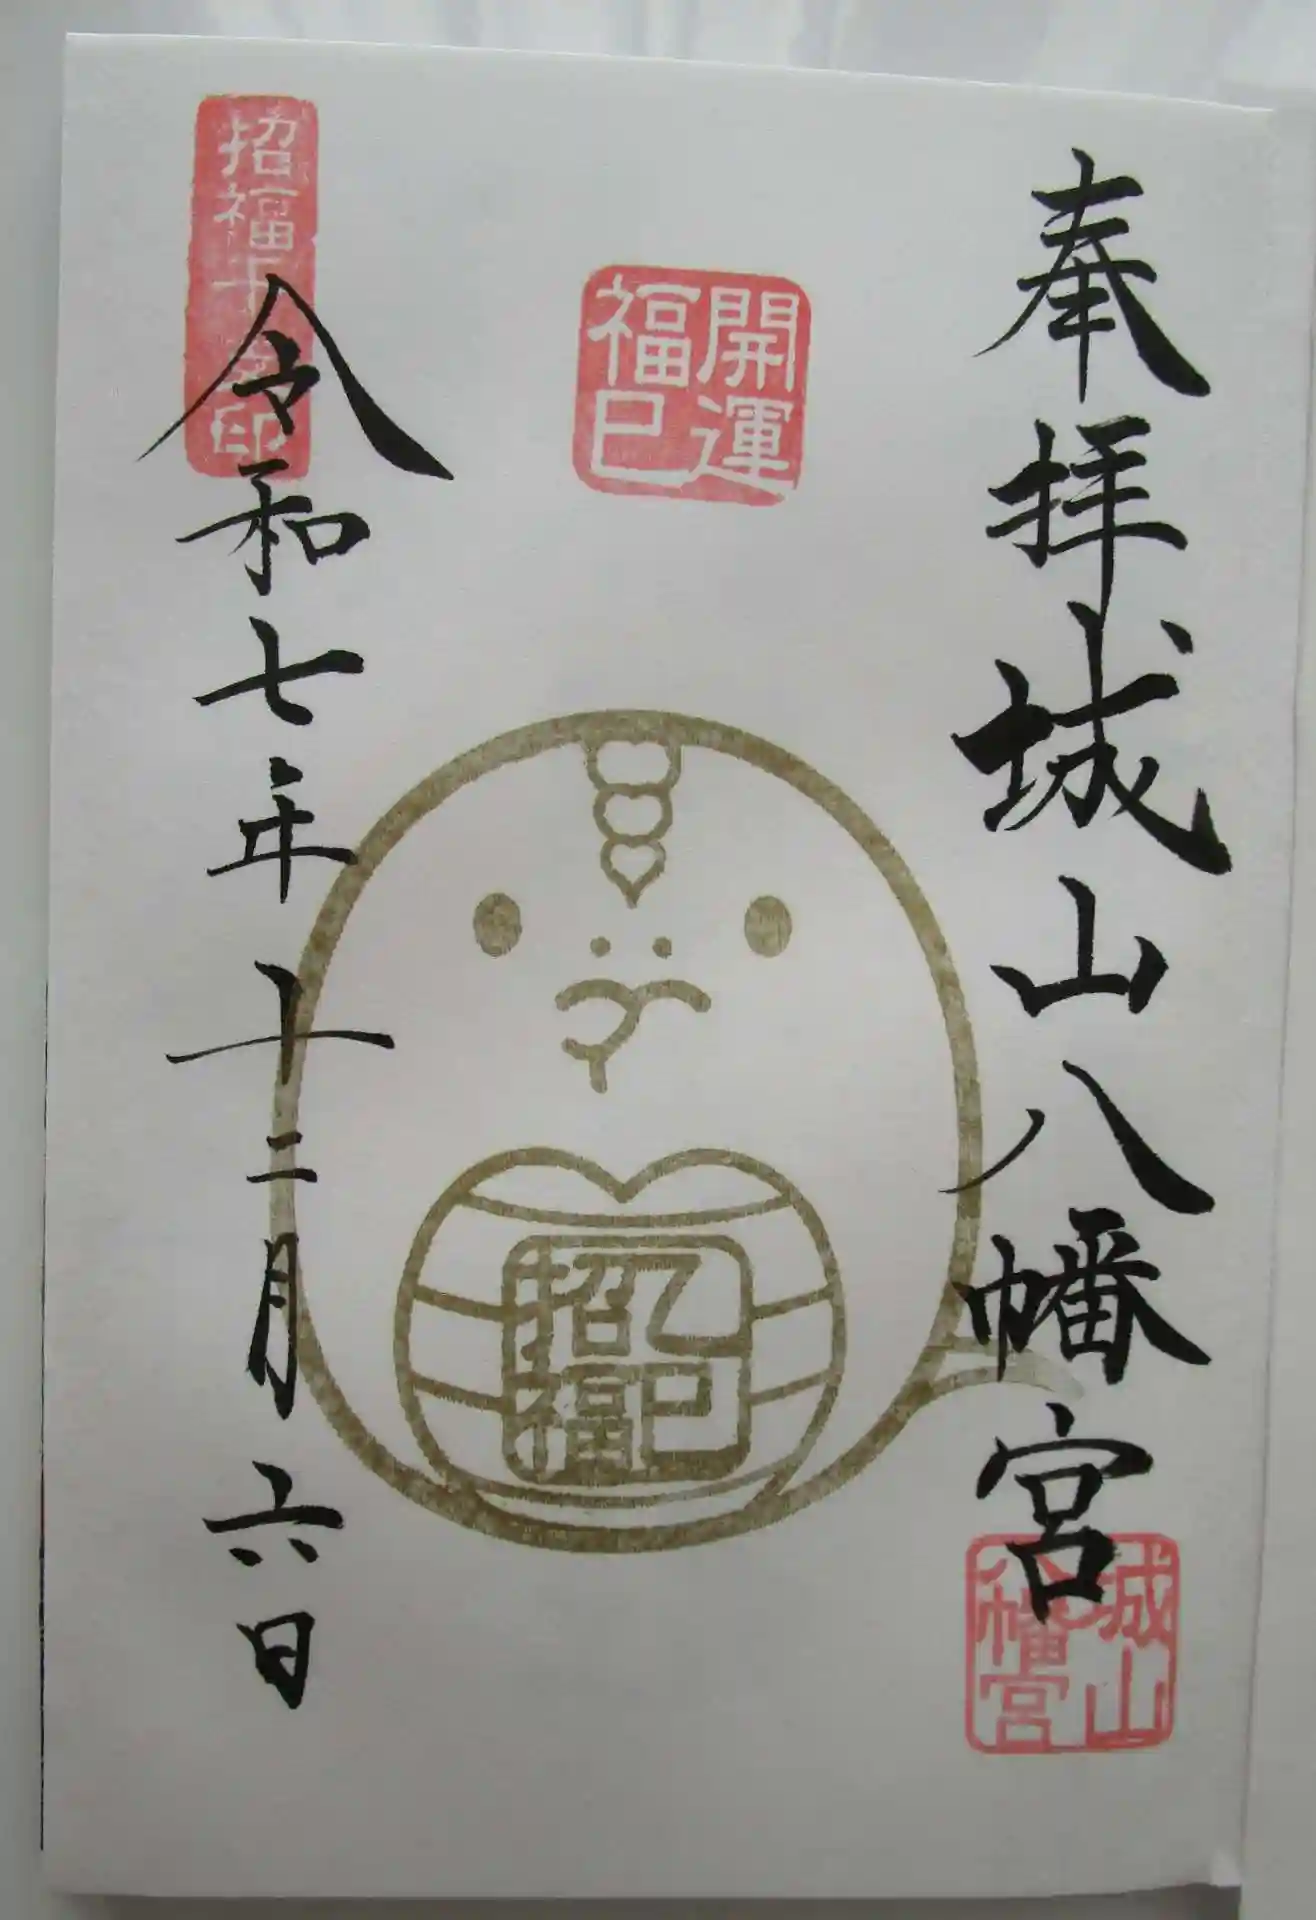 奉拝城山八幡宮
城山
八幡宮
開運
福巳
乙巳
招福
招福干支印
令和七年十二月六日